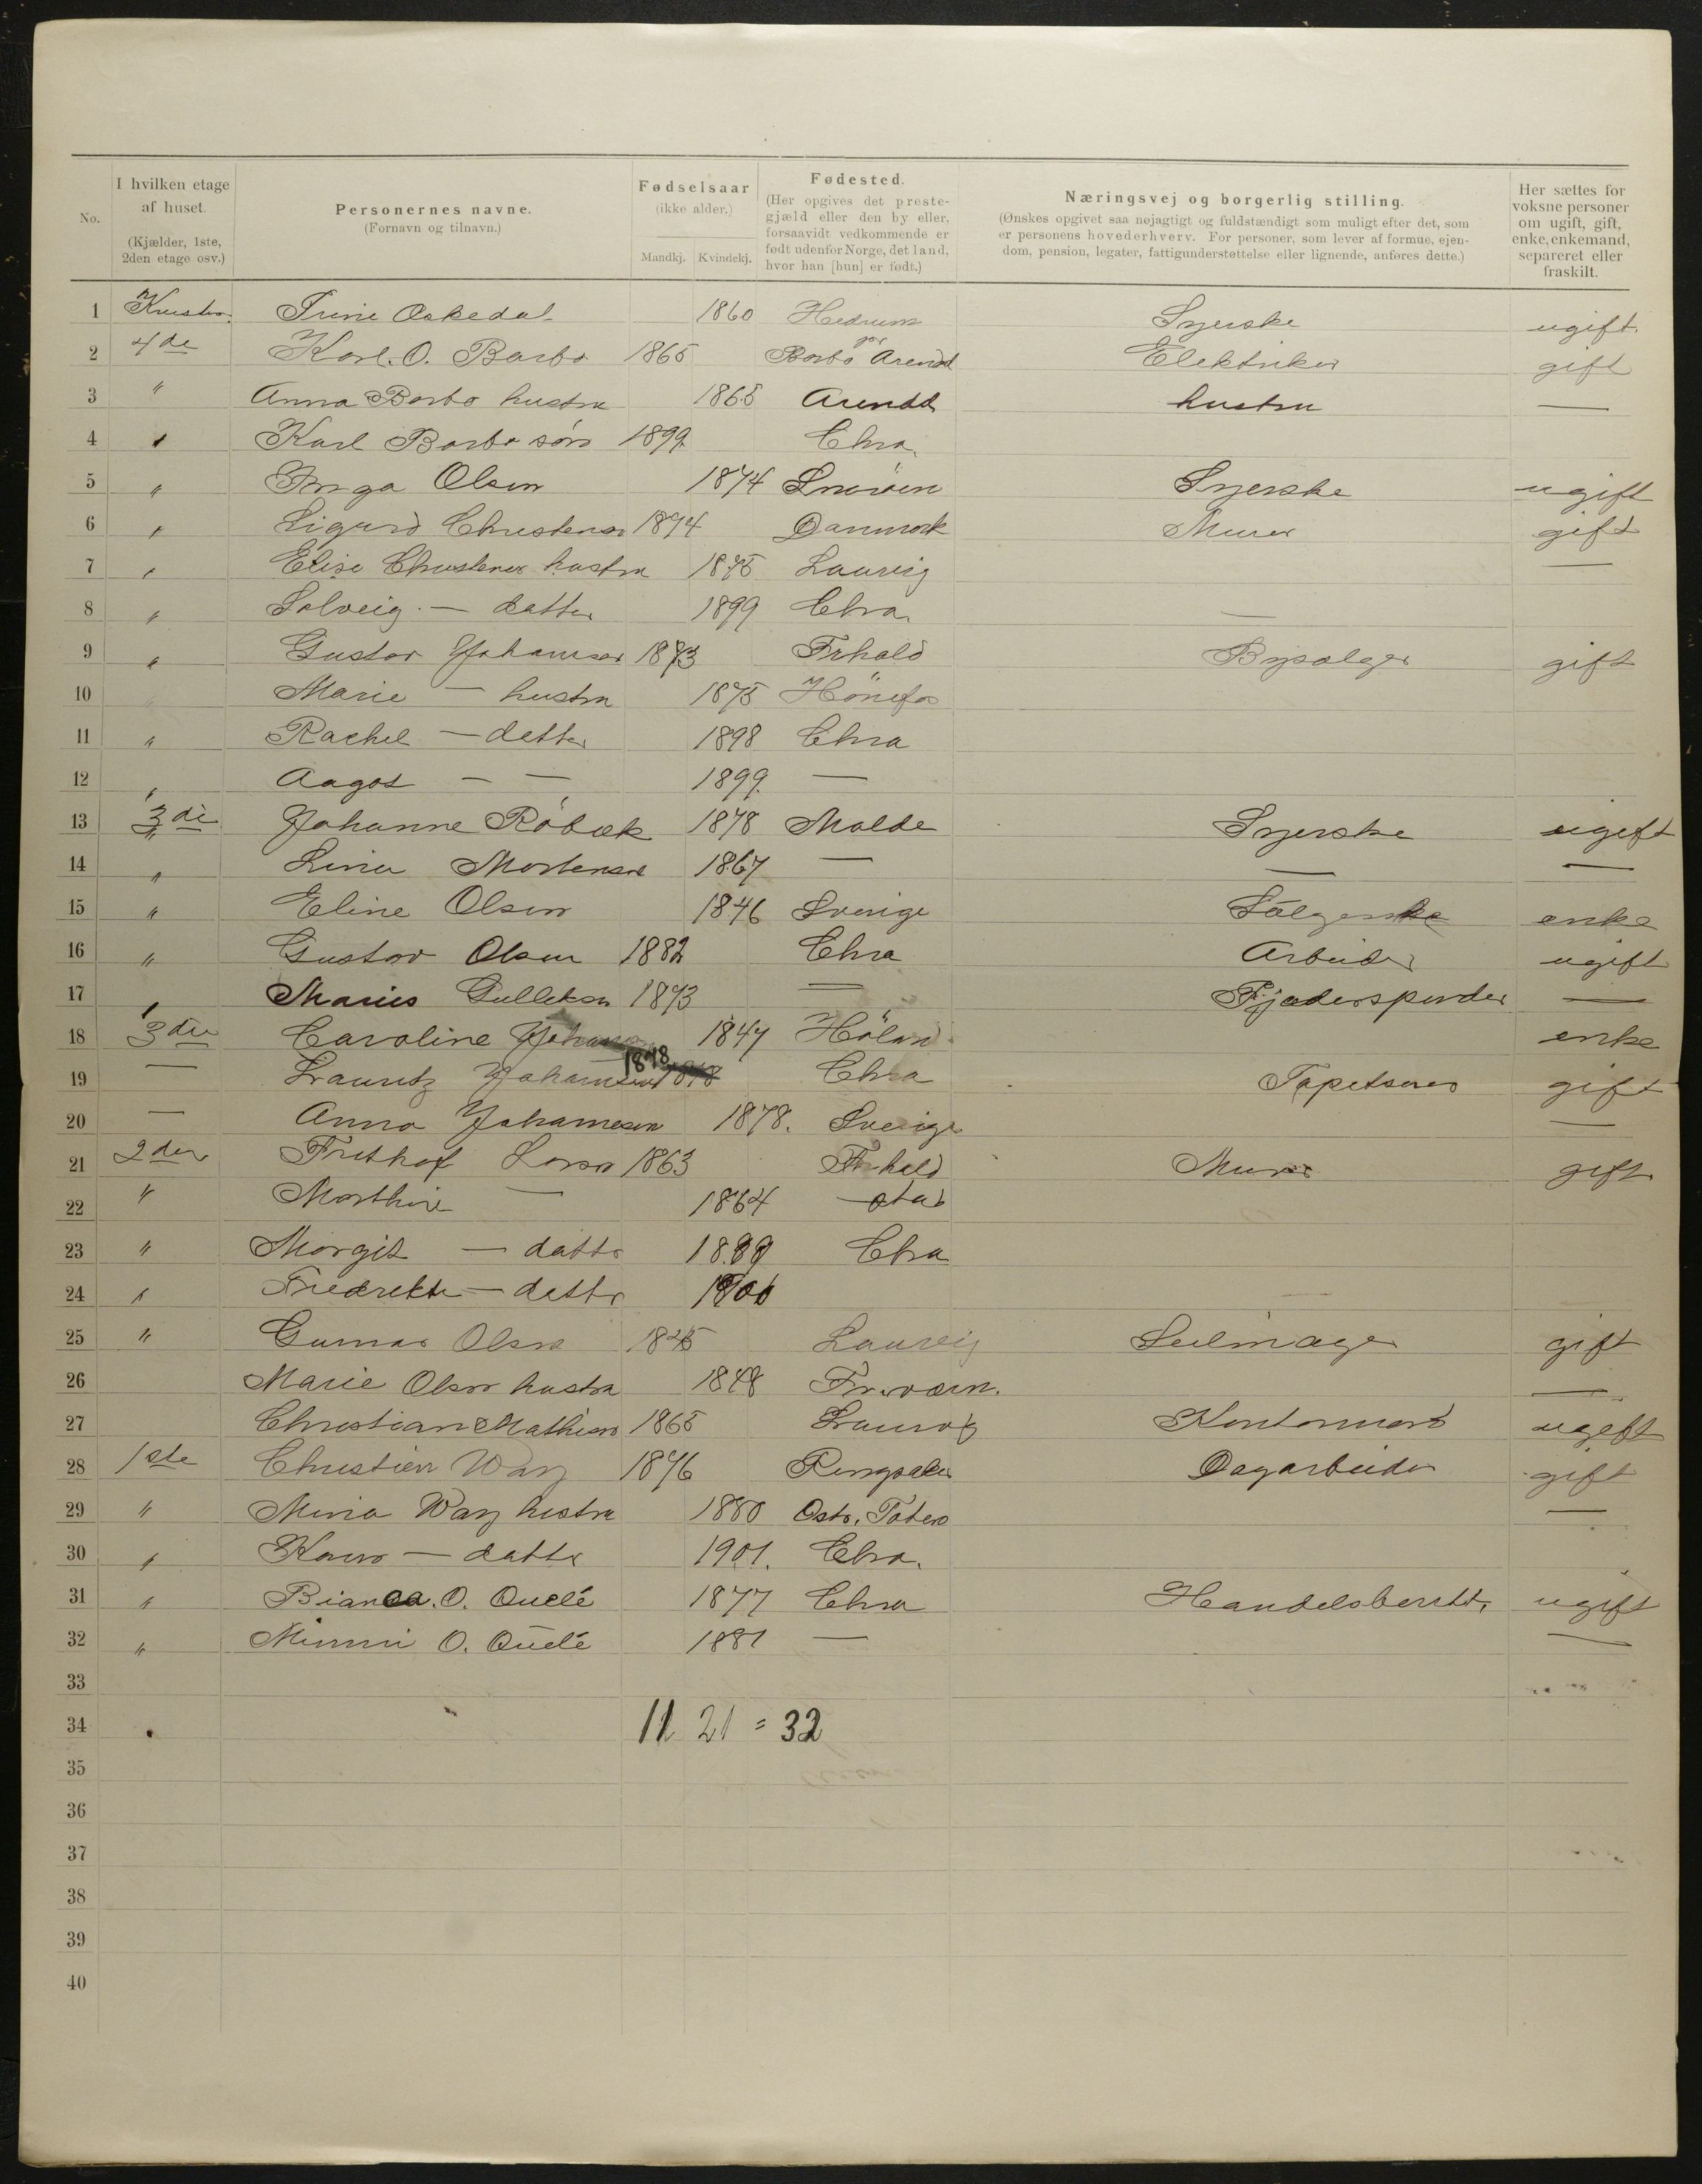 No.
I hvilken etage
af huset.
(Kjælder, 1ste,
2den etage osv.)
Personernes navne.
(Fornavn og tilnavn.)
Fødselsaar
(ikke alder.)
Mandkj. Kvindekj.
Fødested.
(Her opgives det preste-
gjæld eller den by eller,
forsaavidt vedkommende er
født udenfor Norge, det land,
hvor han [hun] er født.)
Næringsvej og borgerlig stilling.
(Ønskes opgivet saa nøjagtigt og fuldstændigt som muligt efter det, som
er personens hovederhverv. For personer, som lever af formue, ejen-
dom, pension, legater, fattigunderstøttelse eller lignende, anføres dette.)
Her sættes for
voksne personer
om ugift, gift,
enke, enkemand,
separeret eller
fraskilt.
1 Trine 1860 Hedrum Syerske ugift
2 4de Karl. O. Barbo 1865 Barbo Arendal Elektriker gift
3 " Anna Barbo hustru 1865 Arendal hustru —
4 " Karl Barbo søn 1899 Chra.
5 " Inga Olsen 1874 Syerske ugift
6 " Sigurd Christensen 1874 Danmark Murer gift
7 " Elise Christensen hustru 1875 Laurvig —
8 " Solveig — datter 1899 Chra. —
9 " Gustav Johansen 1873 Frhald gift
10 " Marie — hustru 1875 Hönefos
11 " Rachel — datter 1898 Chra
12 " Aagot — — 1899. —
13 3die Johanne Röbæk 1878 Molde Syerske ugift
14 " Lina Mortensen 1867 — — —
15 " Eline Olsen 1846 Sverige Sælgerske enke
16 " Gustav Olsen 1882 Chra Arbeider ugift
17 " Marius Gulleksen 1873 — —
18 3die Caroline Johansen 1847 Höland enke
19 — Lauritz Johansen 1878 Chra Tapetserer gift
20 — Anna Johannesen 1878. Sverige —
21 2den Frithof Larsen 1863 Frhald Murer gift
22 " Marthine — 1864
23 " Margit — datter 1889 Chra
24 " Fredrikke — datter 1900 —
25 " Gunnar Olsen 1845 Laurvig Seilmager gift
26 Marie Olsen hustru 1848 Fr.værn. —
27 Christian Mathisen 1865 Laurvig Kontormand ugift
28 1ste Christian Wang 1876 Ringsaker Dagarbeider gift
29 " Mina Wang hustru 1880 Østr. Toten —
30 " Karen — datter 1901. Chra.
31 " Bianca. O. Ouelé 1877 Chra Handelsberett. ugift
32 " Mimmi O. Ouelé 1881 — —
33
34 11 21 = 32
35
36
37
38
39
40